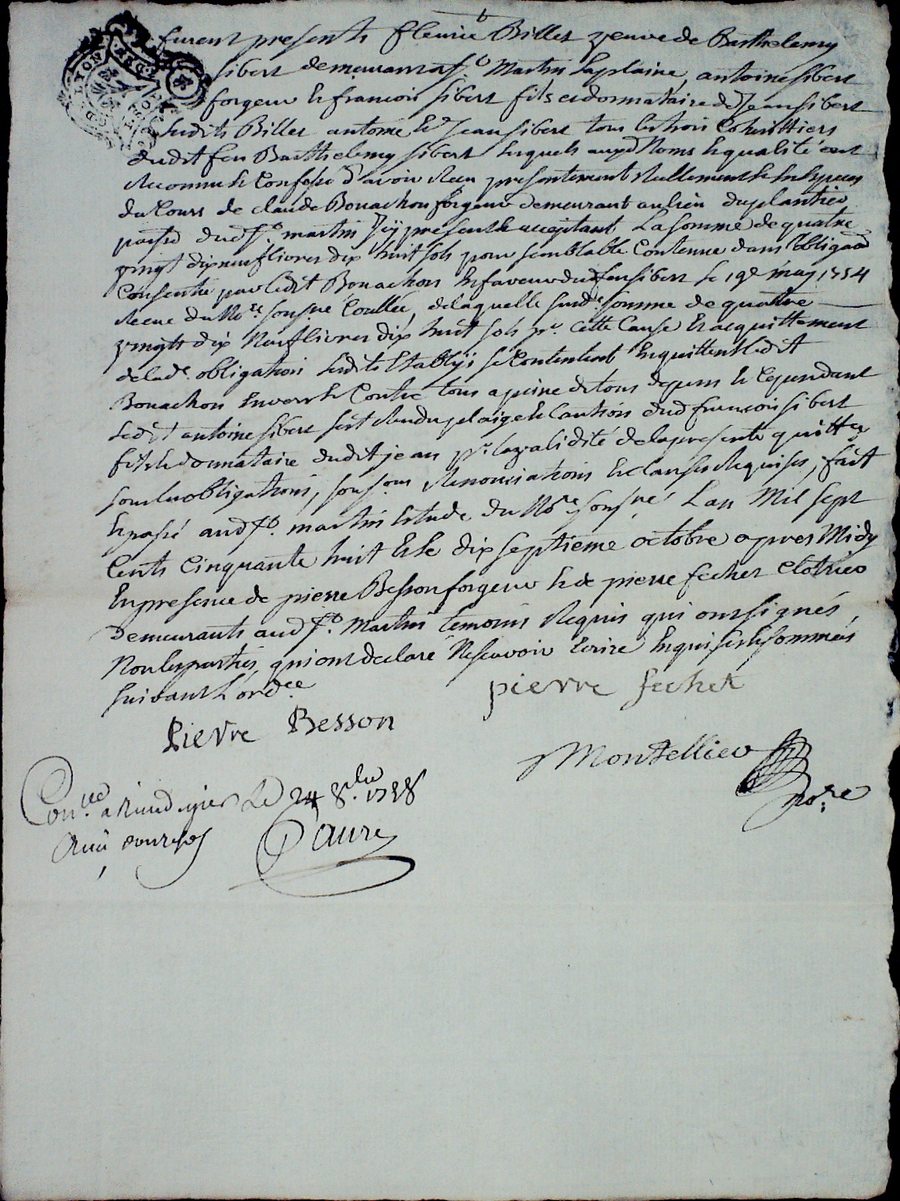 furent presents fleurie Billet veuve de Barthelemy
sibert demeurants a st Martin laplaine, antoine sibert
forgeur & francois sibert fils & donnataire de Jean sibert
lesdits Billet antoine & Jean sibert tous cohérittiers
dudit feu Barthelemy sibert lesquels auxd noms & qualité ont
Reconnu & Confessé d'avoir Receu présentement Réellement & en espèces
du Cours de claude Bonachon forgeur demeurant au lieu du plantier
paroisse dud st martin Icy present & acceptant La somme de quatre
vingt dix neuf livres dix huit sols pour semblable Contenue dans l'obligaon
Consentie par ledit Bonachon En faveur dud feu sibert le 19e may 1754
Receue du Nore sousné, de laquelle sude somme de quatre
vingts dix Neuf livres dix huit sols pr cette Cause & acquittement
de lade obligation lesdits Etablys se Contentent En quittent ledit
Bonachon Envers & Contre tous a peine de tous depens & Cependant
Ledit antoine sibert s'est Rendu plaige & Caution dud francois sibert
fils & donnataire dudit jean pr la validité de la présente quittce
sous les obligations, Renonciations & clauses Requises, fait
& passé aud st martin Etude du Nore sousné L'an Mil sept
Cents Cinquante huit & le dix septieme octobre apres Midy
En presence de pierre Besson forgeur & de pierre fechet
Demeurants aud st Martin temoins Requis qui ont signés
Non les parties qui ont declaré Ne scavoir Ecrire Enquises & sommées
suivant L'ordce
pierre fechet
Pierre Besson
Montellier
nore
Conlle a Rivedegier Le 24 8bre 1758
Reçu
Daure